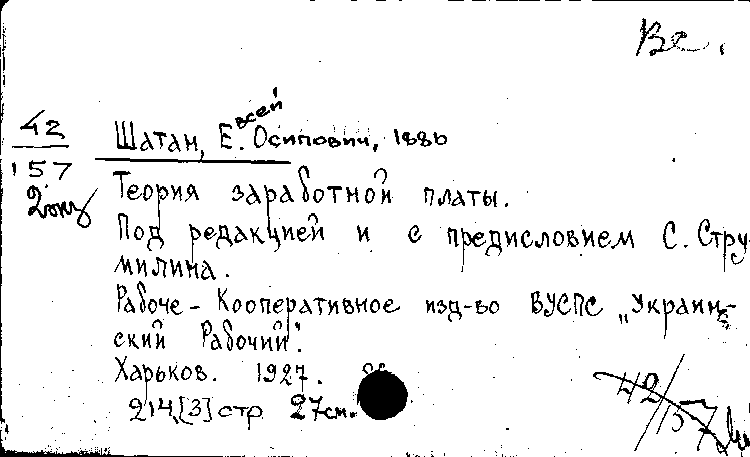 Вс.
42
157
2 экз
Шатан, Евсей Осипович, 1886
Теория заработной платы.
Под редакцией и с предисловием С. Стру-
милина.
Рабоче-Кооперативное изд-во ВУСПС „Украин-
ский Рабочий".
Харьков. 1927.
214,[3] стр 27см.
42/157